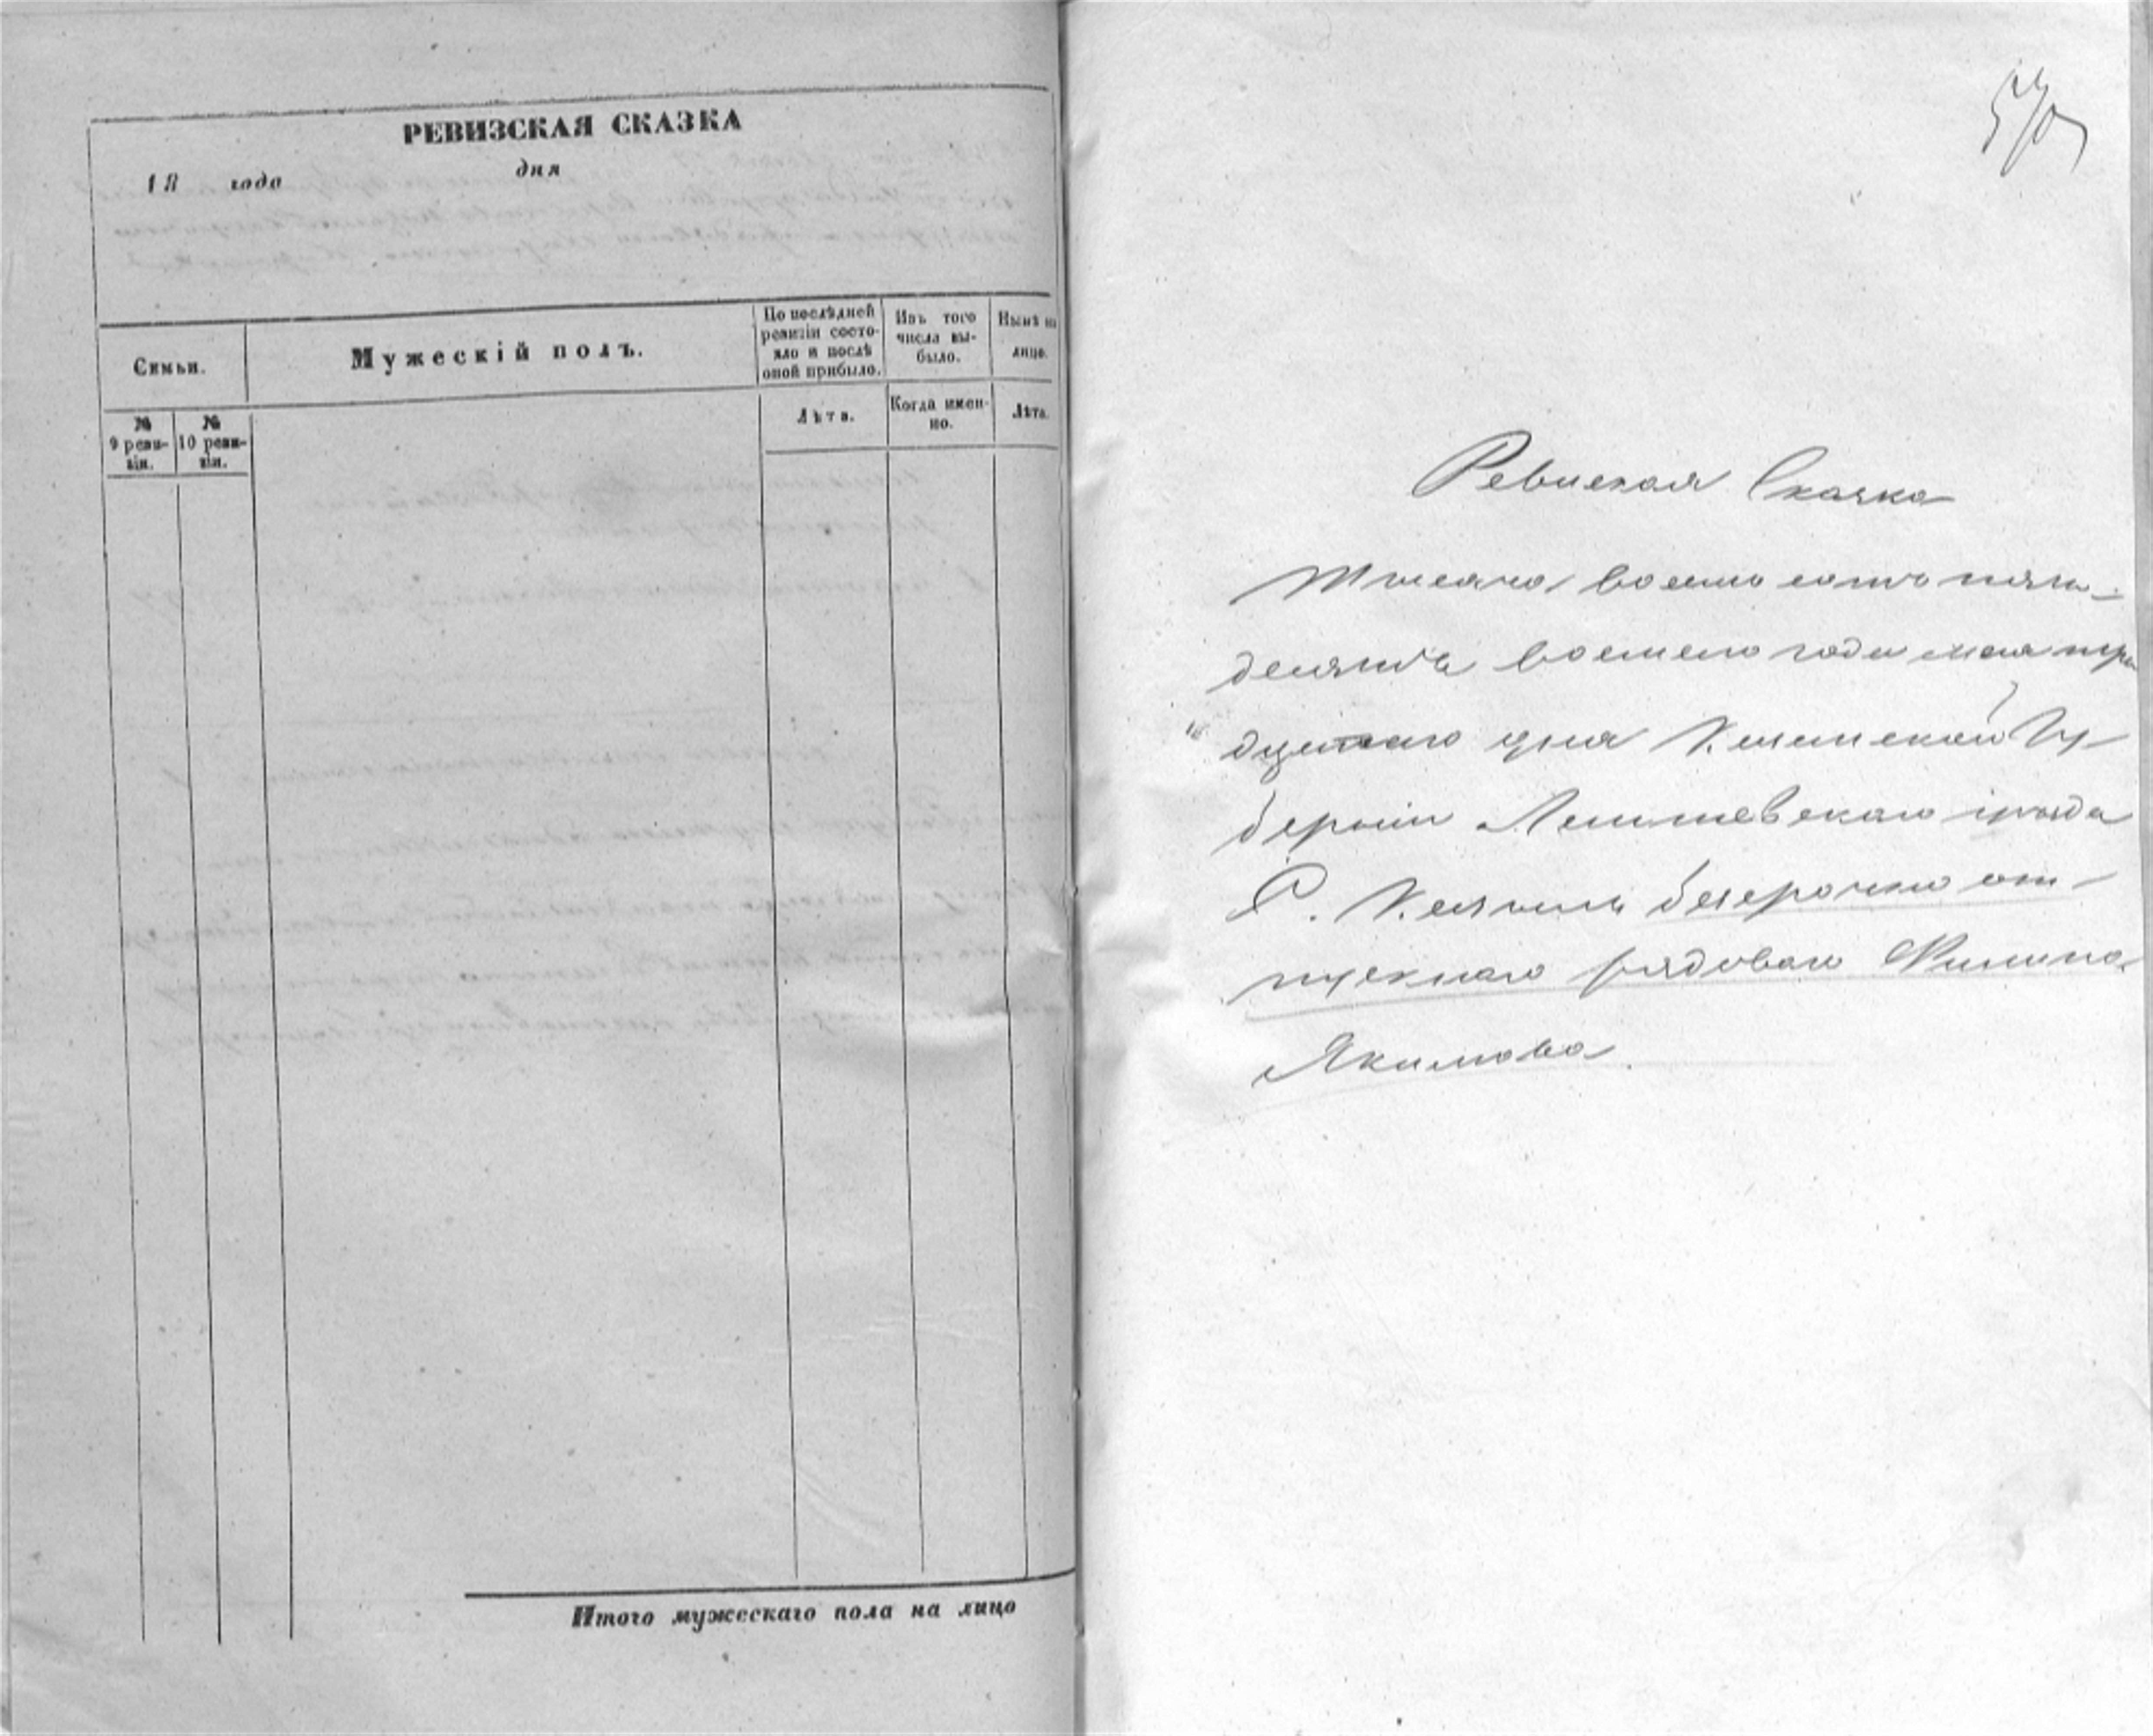 РЕВИЗСКАЯ СКАЗКА
18 года дня
Семьи.
Мужескій полъ.
По послѣдней ревизіи состо-
яло и послѣ
оной прибыло.
Изъ того
числа вы-
было.
Нынѣ на
лицо.
№
9 реви-
зіи.
№
10 реви-
зіи.
Лѣта.
Когда имен-
но.
Лѣта.
Итого мужескаго пола на лицо
570
Ревиская Скаска
Тысяча восемь сотъ пять-
десятъ восьмого года мая
дня Казанской Гу-
берніи Лаишевскаго уѣзда
безсрочно от-
пускнаго рядоваго Филипа
Якимова.